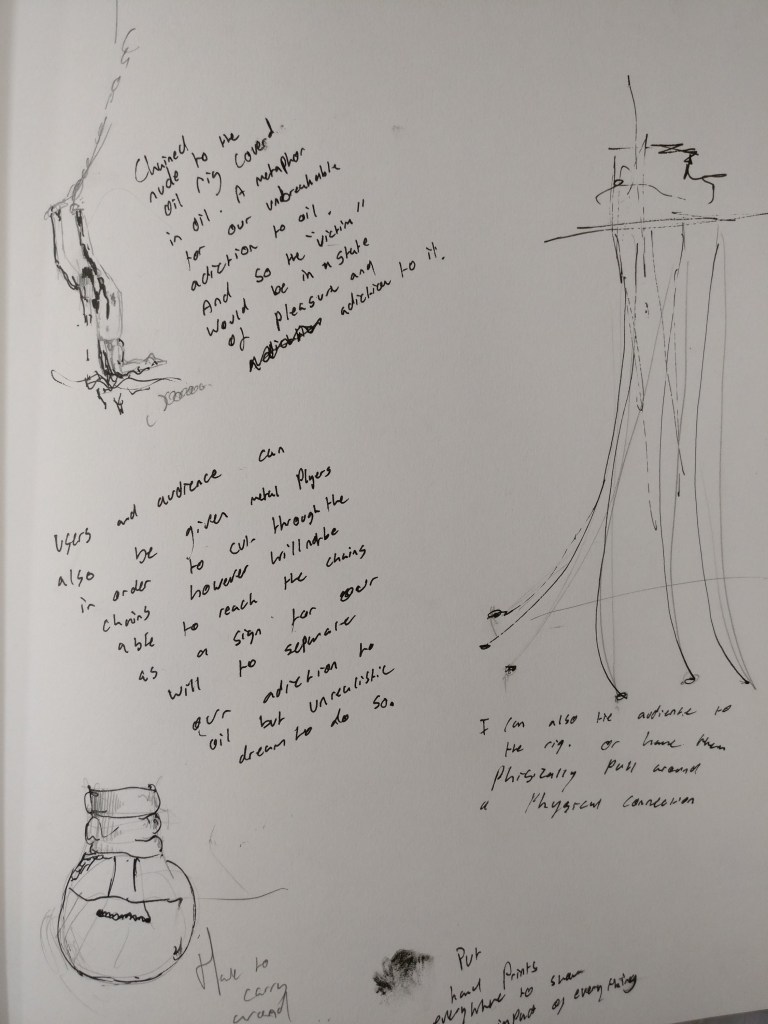 Chained
nude to the
oil rig coverd
in oil. A metaphor
for our unbreakable
adiction to oil.
And so the "victim"
would be in a state
of pleasure and
adiction to it.
Users and audience can
also be given metal Plyers
in order to cut through the
chains however will not be
able to reach the chains
as a sign for our
will to separate
our adiction to
oil but unrealistic
dream to do so.
I can also tie audience to
the rig. or have them
Phisically pull around
a Physical connection
Have to
carry
around
Put
hand prints
everywhere to show
impact of everything